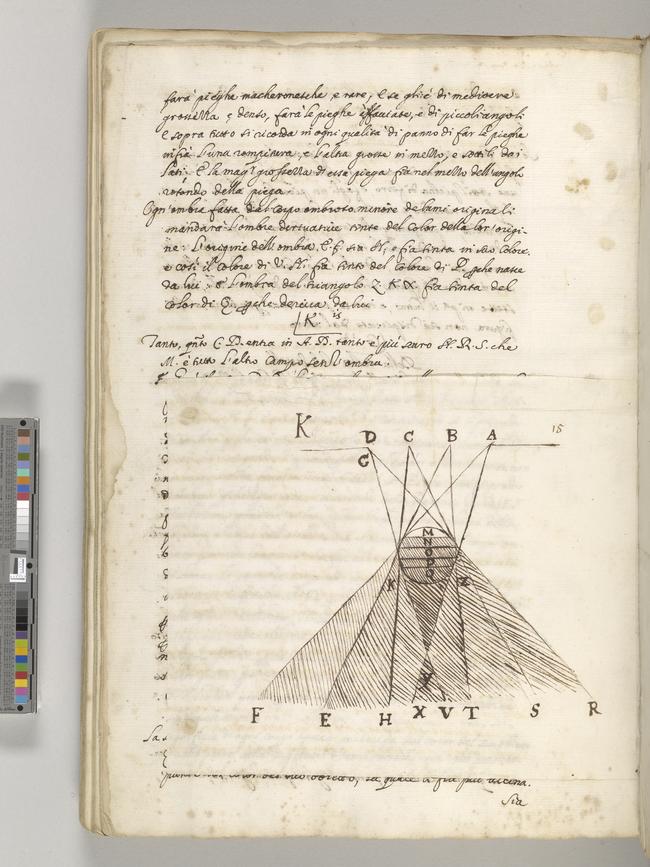 farà pieghe macheronesche e rare, E se gli è di mediocre
grossezza e denso, farà le pieghe affaciate, e di piccoli angoli
E sopra tutto si ricorda in ogni qualità di panno di far le pieghe
infrà l'una rompitura, e l'altra grosse in mezzo, e sottili dai
lati. E la magr grossezza di essa piega fia nel mezzo dell'angolo
rotondo della piega.
Ogn'ombra fatta dal corpo ombroso minore de lumi originali
mandarà l'ombre derivative tinte del color della lor origi-
ne: L'origine dell'ombra. E. F. sia N, e fia tinta in suo colore,
e così il colore di V. H. fia tinto del colore di P. perche nasce
da lui: e l'ombra del triangolo Z. K X. fia tinta del
color di Q. perche deriva da lui
K 15
Tanto, qnto C D. entra in A. B. tanto è più scuro N. R. S. che
M. e tutto l'altro campo senz'ombra.
K D C B A 15
G
M
N
O
P
Q
K Z
Y
F E H X V T S R
sia